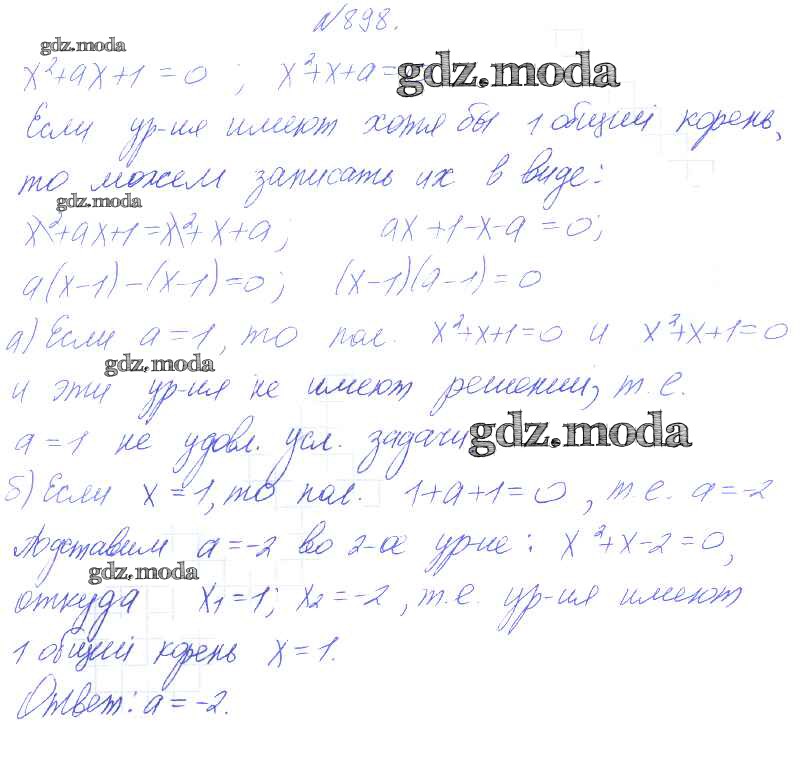 №898.
gdz.moda
x²+ax+1=0 ; x²+x+a= gdz.moda
Если ур-ия имеют хотя бы 1 общий корень,
то можем записать их в виде:
gdz.moda
x²+ax+1=x²+x+a; ax+1-x-a=0;
a(x-1)-(x-1)=0; (x-1)(a-1)=0
а) Если a=1, то пол. x²+x+1=0 и x²+x+1=0
gdz.moda
и эти ур-ия не имеют решений, т.е.
a=1 не удовл. усл. задачи gdz.moda
б) Если x=1, то пол. 1+a+1=0, т.е. a=-2
Подставим a=-2 во 2-ое ур-ие: x²+x-2=0,
gdz.moda
откуда x₁=1; x₂=-2, т.е. ур-ия имеют
1 общий корень x=1.
Ответ: a=-2.